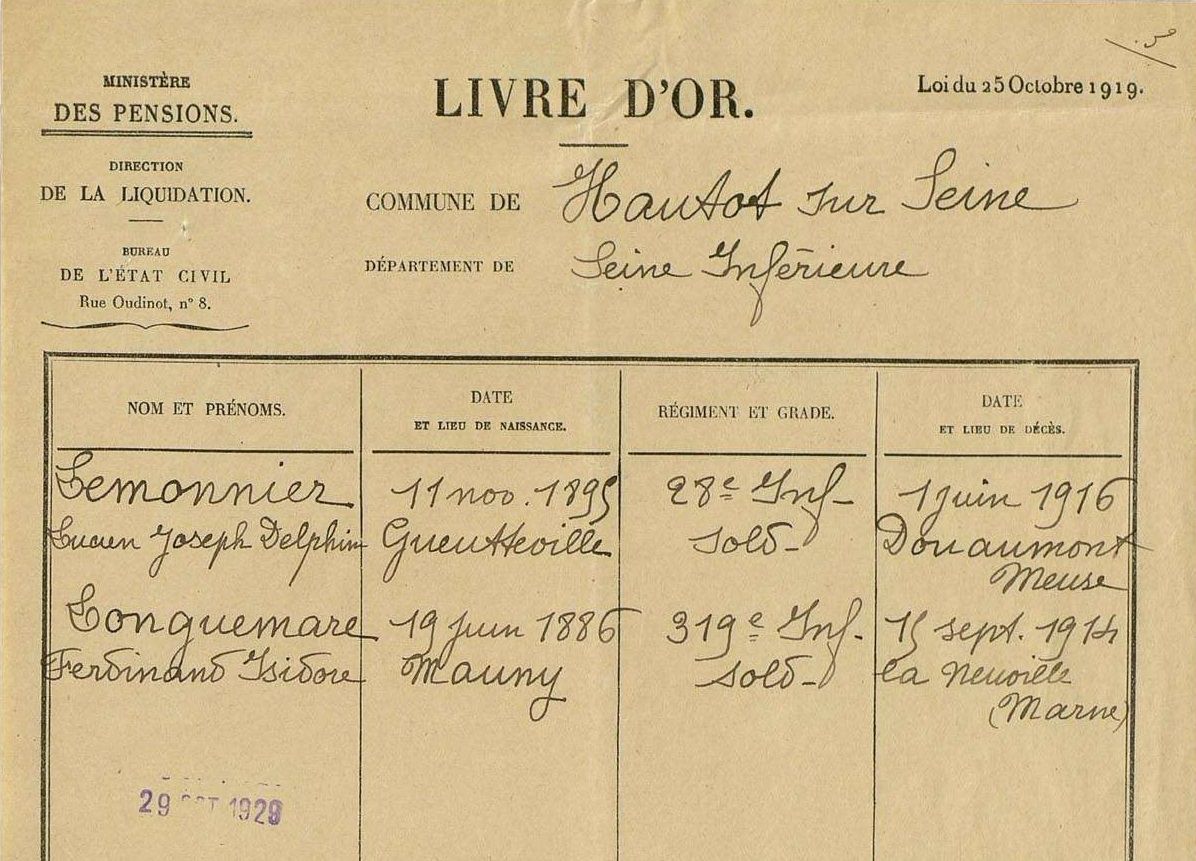 5.
MINISTÈRE
DES PENSIONS.
DIRECTION
DE LA LIQUIDATION.
BUREAU
DE L'ÉTAT CIVIL
Rue Oudinot, n° 8.
LIVRE D'OR.
Loi du 25 Octobre 1919.
COMMUNE DE Hautot sur Seine
DÉPARTEMENT DE Seine Inférieure
NOM ET PRÉNOMS.
DATE
ET LIEU DE NAISSANCE.
RÉGIMENT ET GRADE.
DATE
ET LIEU DE DÉCÈS.
Lemonnier 11 nov. 1895 28e Inf- 1 juin 1916
Lucien Joseph Delphin Gueutteville sold- Douaumont
Meuse
Longuemare 19 juin 1886 319e Inf- 15 sept. 1914
Ferdinand Isidore Mauny sold- la Neuville
(Marne)
29 OCT 1929